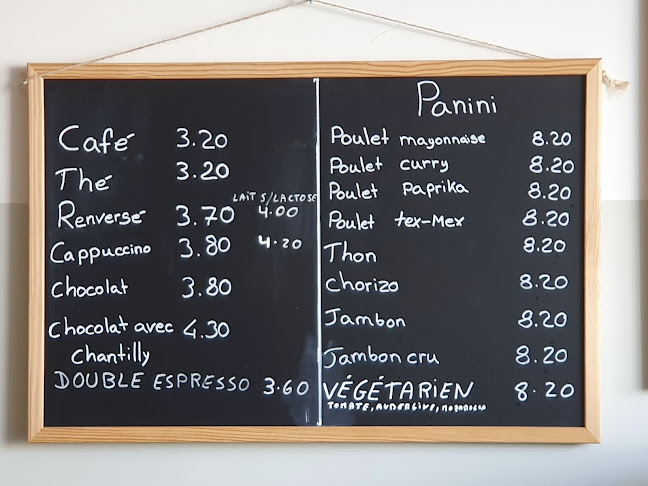 Café 3.20
Thé 3.20
LAIT S/LACTOSE
Renversé 3.70 4.00
Cappuccino 3.80 4.20
Chocolat 3.80
Chocolat avec 4.30
Chantilly
DOUBLE ESPRESSO 3.60
Panini
Poulet mayonnaise 8.20
Poulet curry 8.20
Poulet Paprika 8.20
Poulet tex-Mex 8.20
Thon 8.20
Chorizo 8.20
Jambon 8.20
Jambon cru 8.20
VÉGÉTARIEN 8.20
TOMATE,